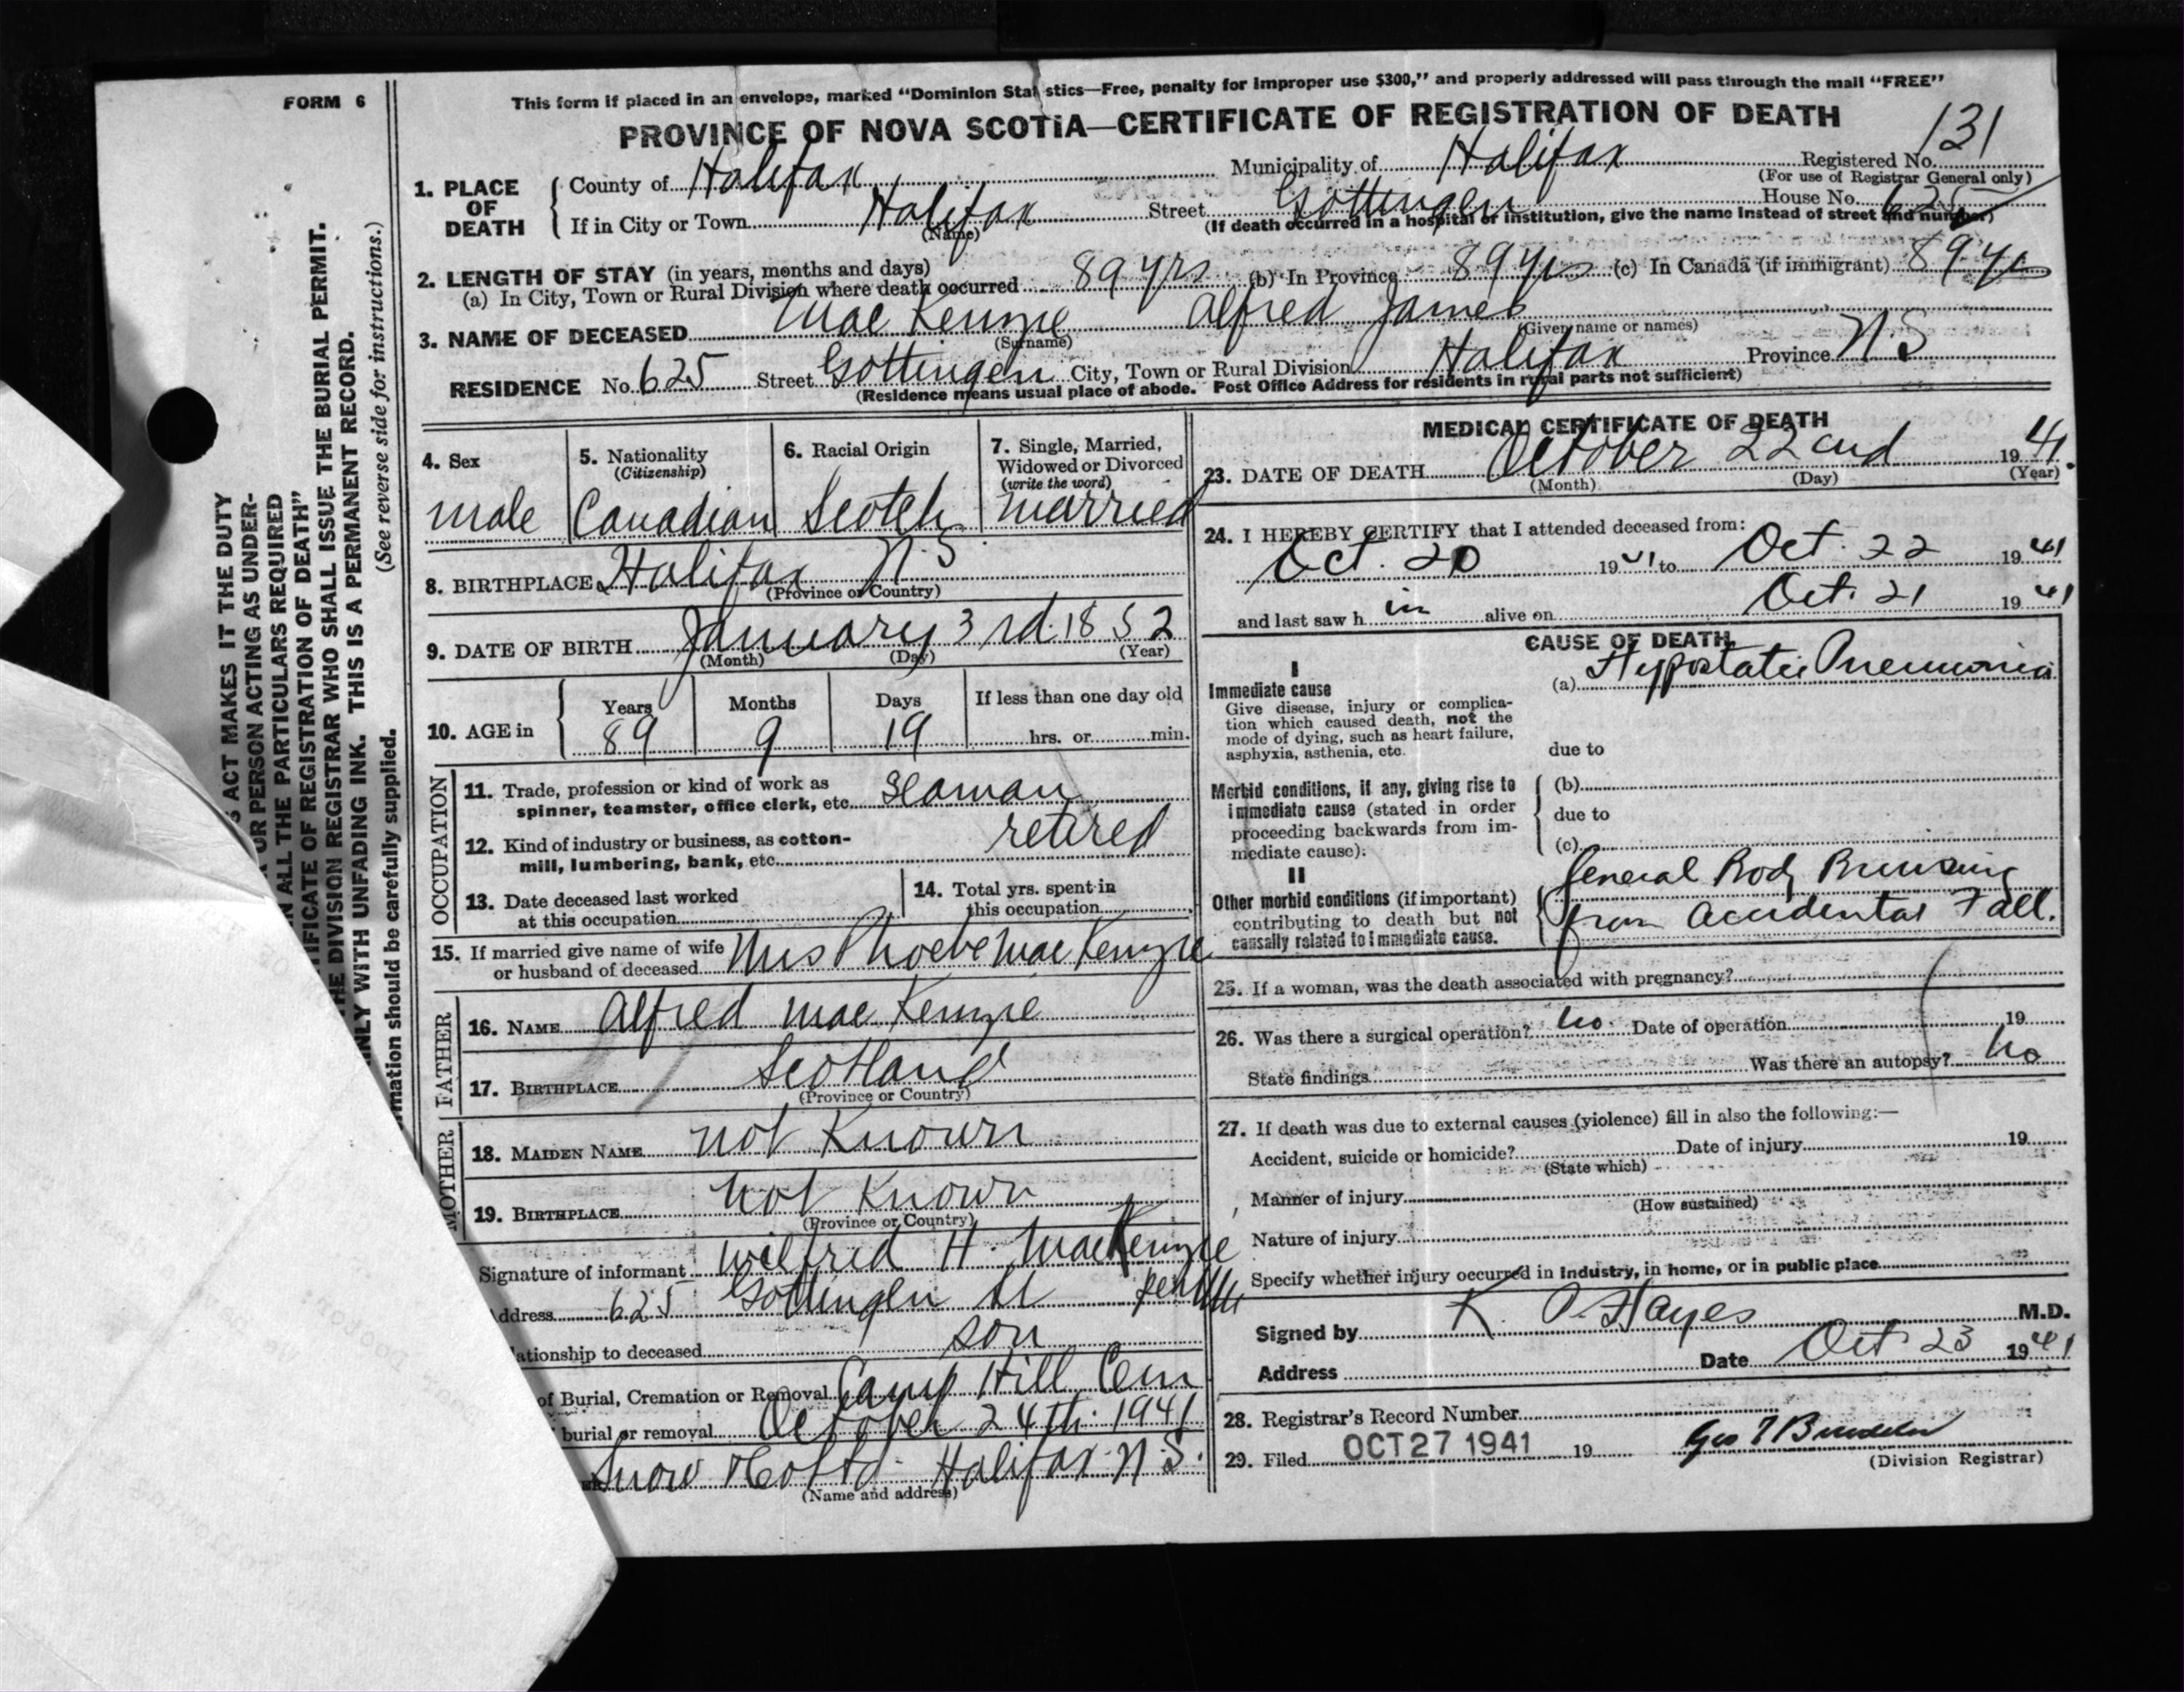 FORM 6
This form if placed in an envelope, marked “Dominion Stat stics—Free, penalty for improper use $300,” and properly addressed will pass through the mail “FREE”
PROVINCE OF NOVA SCOTIA—CERTIFICATE OF REGISTRATION OF DEATH
131
1. PLACE OF DEATH
County of Halifax Municipality of Halifax Registered No.
(For use of Registrar General only)
If in City or Town Halifax Street Gottingen House No. 625
(Name) (If death occurred in a hospital or institution, give the name instead of street and number)
2. LENGTH OF STAY (in years, months and days)
(a) In City, Town or Rural Division where death occurred 89 yrs (b) In Province 89 yrs (c) In Canada (if immigrant) 89 yrs
3. NAME OF DECEASED Mac Kenzie Alfred James
(Surname) (Given name or names)
RESIDENCE No. 625 Street Gottingen City, Town or Rural Division Halifax Province N.S
(Residence means usual place of abode. Post Office Address for residents in rural parts not sufficient)
4. Sex
male
5. Nationality
(Citizenship)
Canadian
6. Racial Origin
Scotch
7. Single, Married,
Widowed or Divorced
(write the word)
married
8. BIRTHPLACE Halifax N.S.
(Province or Country)
9. DATE OF BIRTH January 3rd 1852
(Month) (Day) (Year)
10. AGE in
Years Months Days If less than one day old
89 9 19 hrs. or min.
OCCUPATION
11. Trade, profession or kind of work as
spinner, teamster, office clerk, etc. Seaman
12. Kind of industry or business, as cotton-
mill, lumbering, bank, etc. retired
13. Date deceased last worked
at this occupation
14. Total yrs. spent in
this occupation
15. If married give name of wife
or husband of deceased Mrs Phoebe MacKenzie
FATHER
16. NAME Alfred MacKenzie
17. BIRTHPLACE Scotland
(Province or Country)
MOTHER
18. MAIDEN NAME not Known
19. BIRTHPLACE not Known
(Province or Country)
Signature of informant Wilfred H. MacKenzie
ddress 625 Gottingen St
ationship to deceased son
of Burial, Cremation or Removal Camp Hill Cem
burial or removal October 24th 1941
Snow & Co Ltd. Halifax N.S.
(Name and address)
MEDICAL CERTIFICATE OF DEATH
23. DATE OF DEATH October 22cnd 1941.
(Month) (Day) (Year)
24. I HEREBY CERTIFY that I attended deceased from:
Oct. 20 1941 to Oct. 22 1941
and last saw h im alive on Oct. 21 1941
CAUSE OF DEATH
I
Immediate cause
Give disease, injury or complica-
tion which caused death, not the
mode of dying, such as heart failure,
asphyxia, asthenia, etc.
(a) Hypostatic Pneumonia
due to
Morbid conditions, if any, giving rise to
immediate cause (stated in order
proceeding backwards from im-
mediate cause).
(b)
due to
(c)
II
Other morbid conditions (if important)
contributing to death but not
causally related to immediate cause.
General Body Bruising
from accidental Fall.
25. If a woman, was the death associated with pregnancy?
26. Was there a surgical operation? no. Date of operation 19
State findings Was there an autopsy? No
27. If death was due to external causes (violence) fill in also the following:—
Accident, suicide or homicide? Date of injury 19
(State which)
Manner of injury
(How sustained)
Nature of injury
Specify whether injury occurred in industry, in home, or in public place
Signed by K. A. Hayes M.D.
Address Date Oct 23 1941
28. Registrar's Record Number
29. Filed OCT 27 1941 19
(Division Registrar)
S ACT MAKES IT THE DUTY
OR PERSON ACTING AS UNDER-
IN ALL THE PARTICULARS REQUIRED
TIFICATE OF REGISTRATION OF DEATH”
THE DIVISION REGISTRAR WHO SHALL ISSUE THE BURIAL PERMIT.
INLY WITH UNFADING INK. THIS IS A PERMANENT RECORD.
(See reverse side for instructions.)
rmation should be carefully supplied.